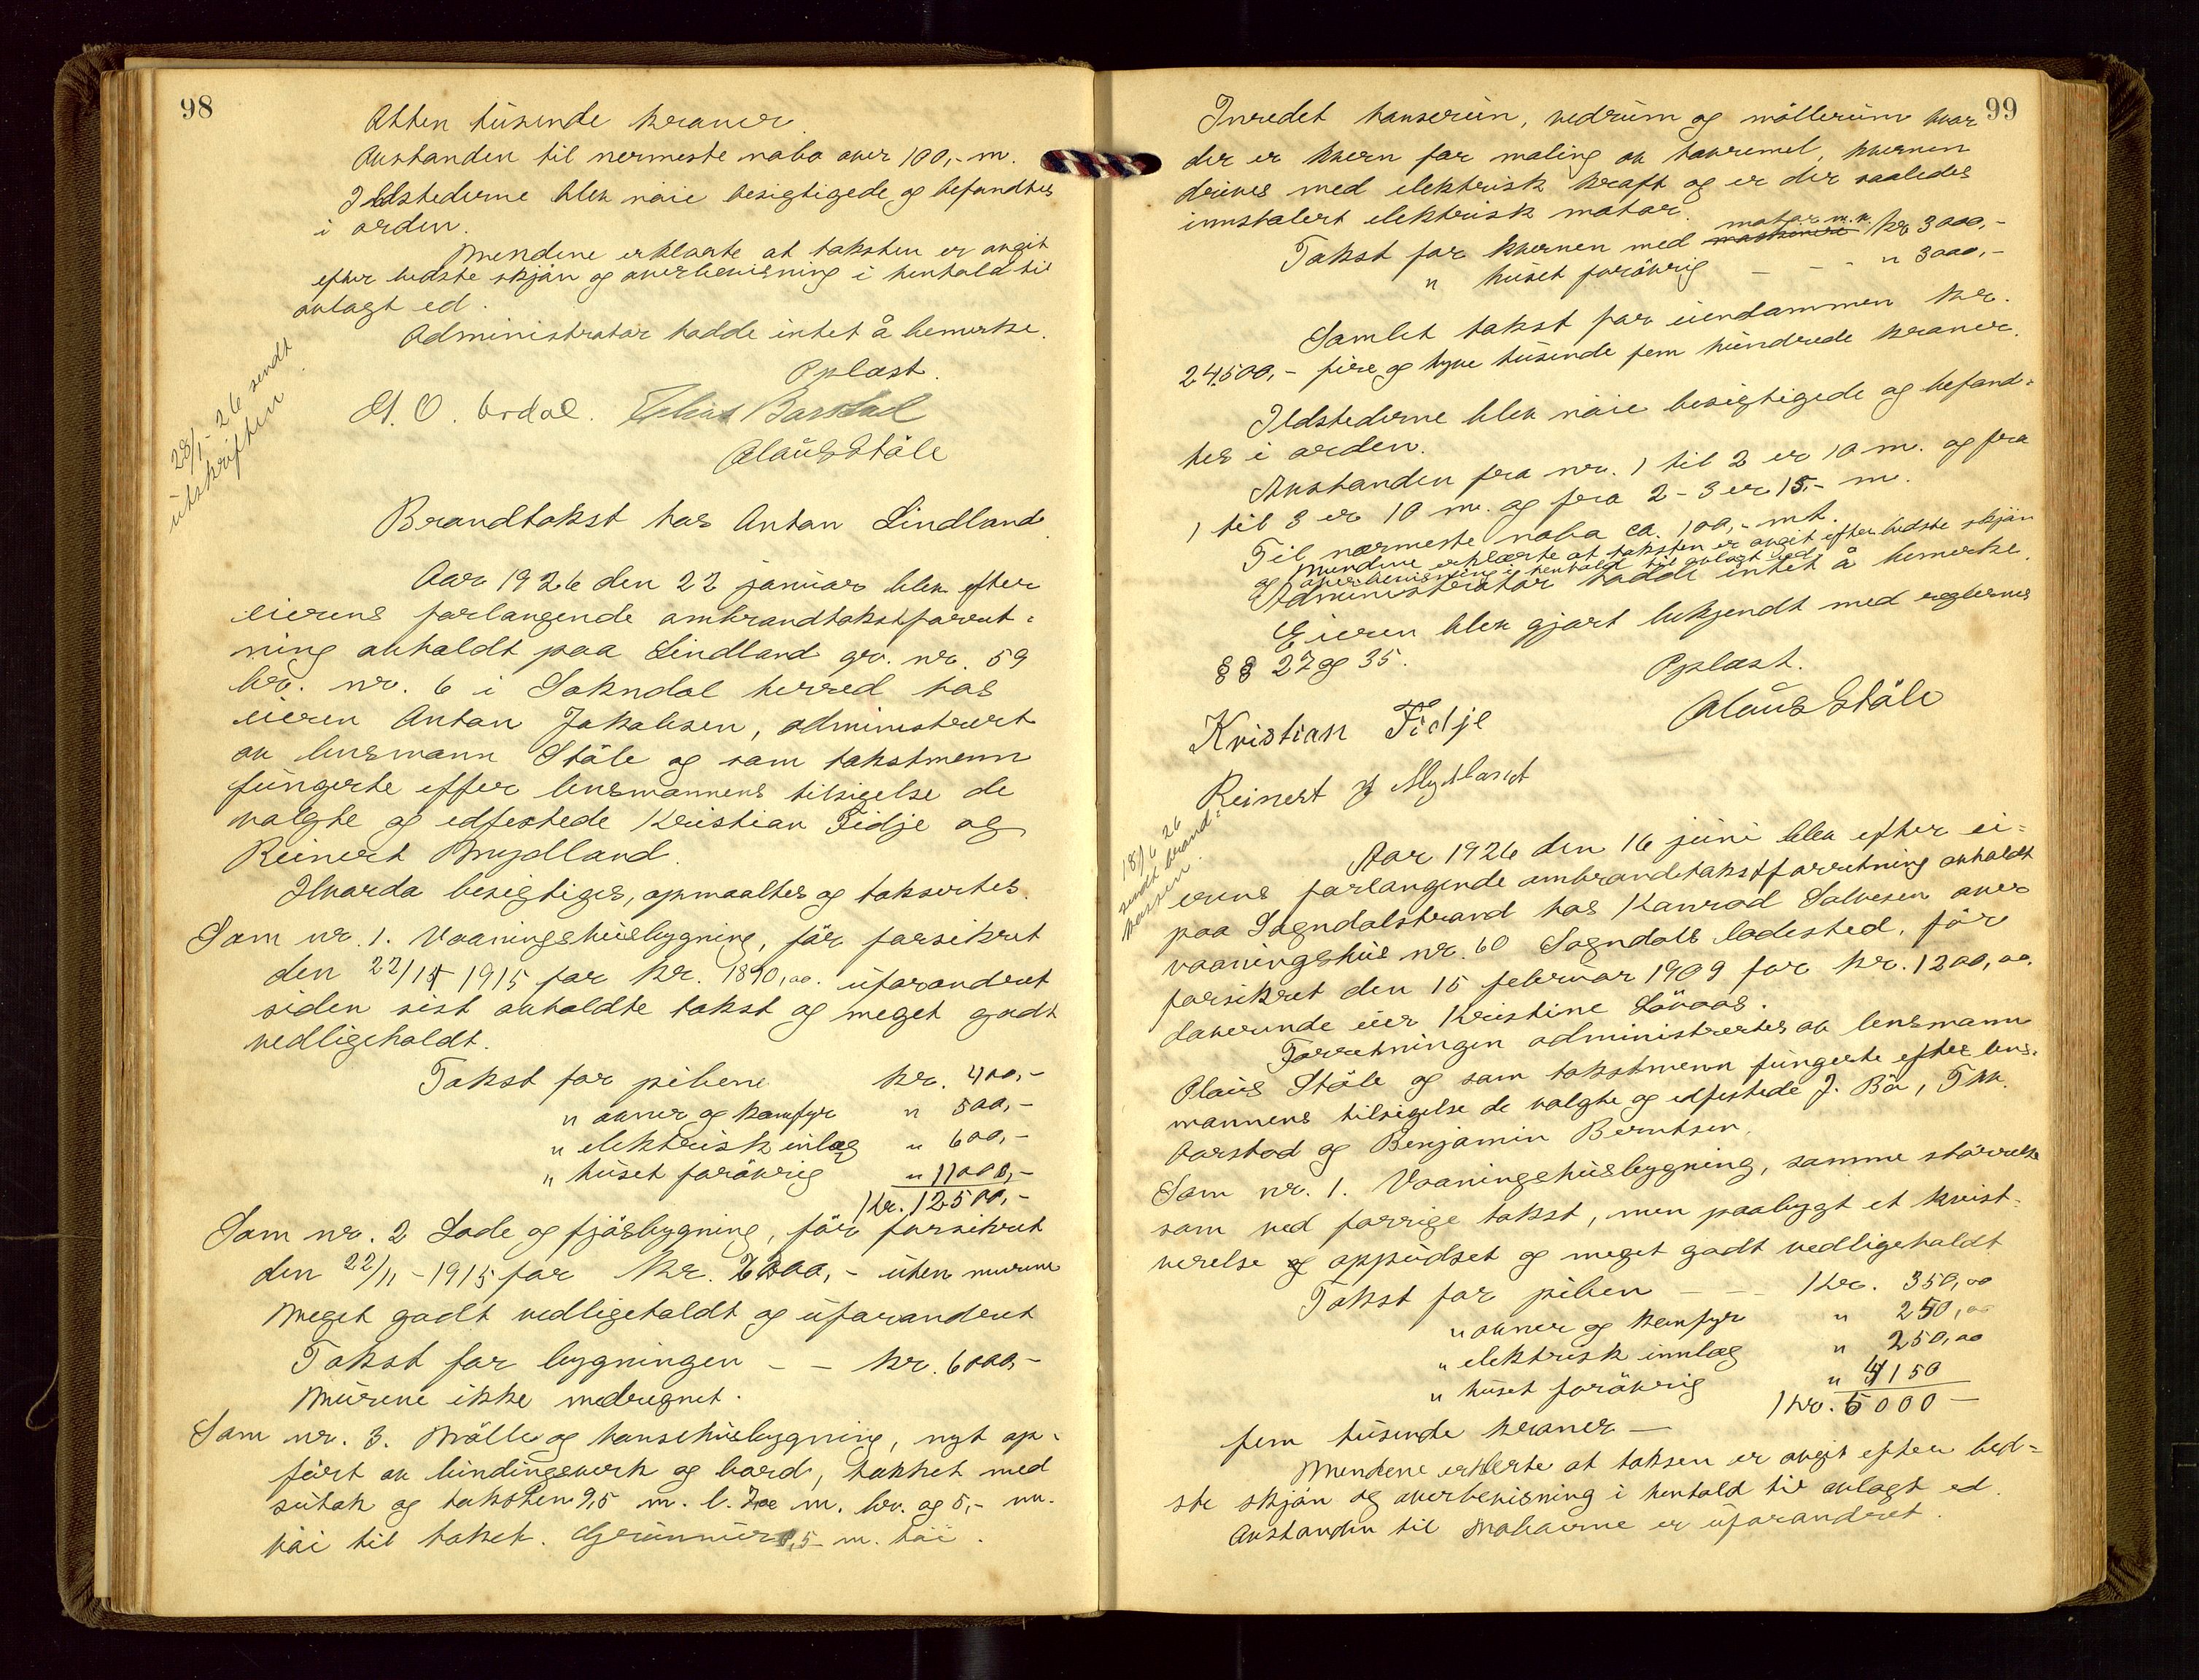 98
Atten tusende kroner.
Avstanden til nermeste nabo over 100,- m.
Ildstederne blev nøie besigtigede og befandtes
i orden.
Mendene erklærte at taksten er avgit
efter bedste skjøn og overbevisning i henhold til
avlagt ed.
Administrator hadde intet å bemerke.
Oplæst.
Olaus Ståle
28/1-26 sendt
utskriften
Brandtakst hos Anton Lindland
Aar 1926 den 22 januar blev efter
eierens forlangende ombrandtakstforret-
ning avholdt paa Lindland gr. nr. 59
br. nr. 6 i Sokndal herred hos
eieren Anton Jakobsen, administrert
av lensmann Ståle og som takstmenn
fungerte efter lensmannens tilsigelse de
valgte og edfestede Kristian Fidje og
Reinert Mydland.
Hvorda besigtiges, opmaaltes og taksertes.
Som nr. 1. Vaaningshusbygning, før forsikret
den 22/11 1915 for kr. 1890,00. uforandret
siden sist avholdte takst og meget godt
vedligeholdt.
Takst for pibene kr. 400,-
" ovner og komfyr " 500,-
" elektrisk inlæg " 600,-
" huset forøvrig " 11000,-
Kr. 12500,-
Som nr. 2 Løde og fjøsbygning, før forsikret
den 22/11-1915 for Kr. 7300,- uten murene
Meget godt vedligeholdt og uforandret
Takst for bygningen - - kr. 6000,-
Murene ikke medregnet.
Som nr. 3. Mølle og hønsehusbygning, nyt op-
ført av bindingsverk og bord, takket med
sutak og taksten 9,5 m. l. 7,00 m. br. og 5,- m.
høi til taket. Grunnmur 0,5 m. høi.
99
Inredet hønserum, vedrum og møllerum hvor
der er kvern for maling av havremel, kvernen
drives med elektrisk kraft og er der saaledes
innstalert elektrisk motor.
Takst for kvernen med maskineri motor m.v. kr 3000,-
" huset forøvrig - - - " 3000,-
Samlet takst for eiendommen kr.
24500,- fire og tyve tusende fem hundrede kroner.
Ildstederne blev nøie besigtigede og befand-
tes i orden.
Avstanden fra nr. 1 til 2 er 10 m. og fra
1 til 3 er 10 m. og fra 2 - 3 er 15,- m.
Til nærmeste nabo ca. 100,- mt.
Mendene erklærte at taksten er avgit efter bedste skjøn
og overbevisning i henhold til avlagt ed.
Administrator hadde intet å bemerke.
Eieren blev gjort bekjendt med reglernes
§§ 27 og 35.
Oplæst.
Olaus Ståle
Kristian Fidje
Reinert Mydland
18/6 26
sendt brand-
kassen.
Aar 1926 den 16 juni blev efter ei-
erens forlangende ombrandstakstforretning avholdt
paa Sogndalstrand hos Konrad Salvesen over
vaaningshus nr. 60 Sogndals ladested, før
forsikret den 15 februar 1909 for kr. 1200,00.
daverende eier Kristine Løvaas.
Forretningen administrertes av lensmann
Olaus Ståle og som takstmenn fungerte efter lens-
mannens tilsigelse de valgte og edfestede J. Bø, Thv.
Aarstad og Benjamin Berntsen.
Som nr. 1. Vaaningshusbygning, samme størrelse
som ved forrige takst, men paabygt et kvist-
verelse og oppudset og meget godt vedligeholdt
Takst for piben - - - Kr. 350,00
" ovner og komfyr " 250,00
" elektrisk innlæg " 250,00
" huset forøvrig " 4150
Kr. 5000 -
fem tusende kroner -
Mendene erklerte at taksen er avgit efter bed-
ste skjøn og overbevisning i henhold til avlagt ed.
Avstanden til naboerne er uforandret.